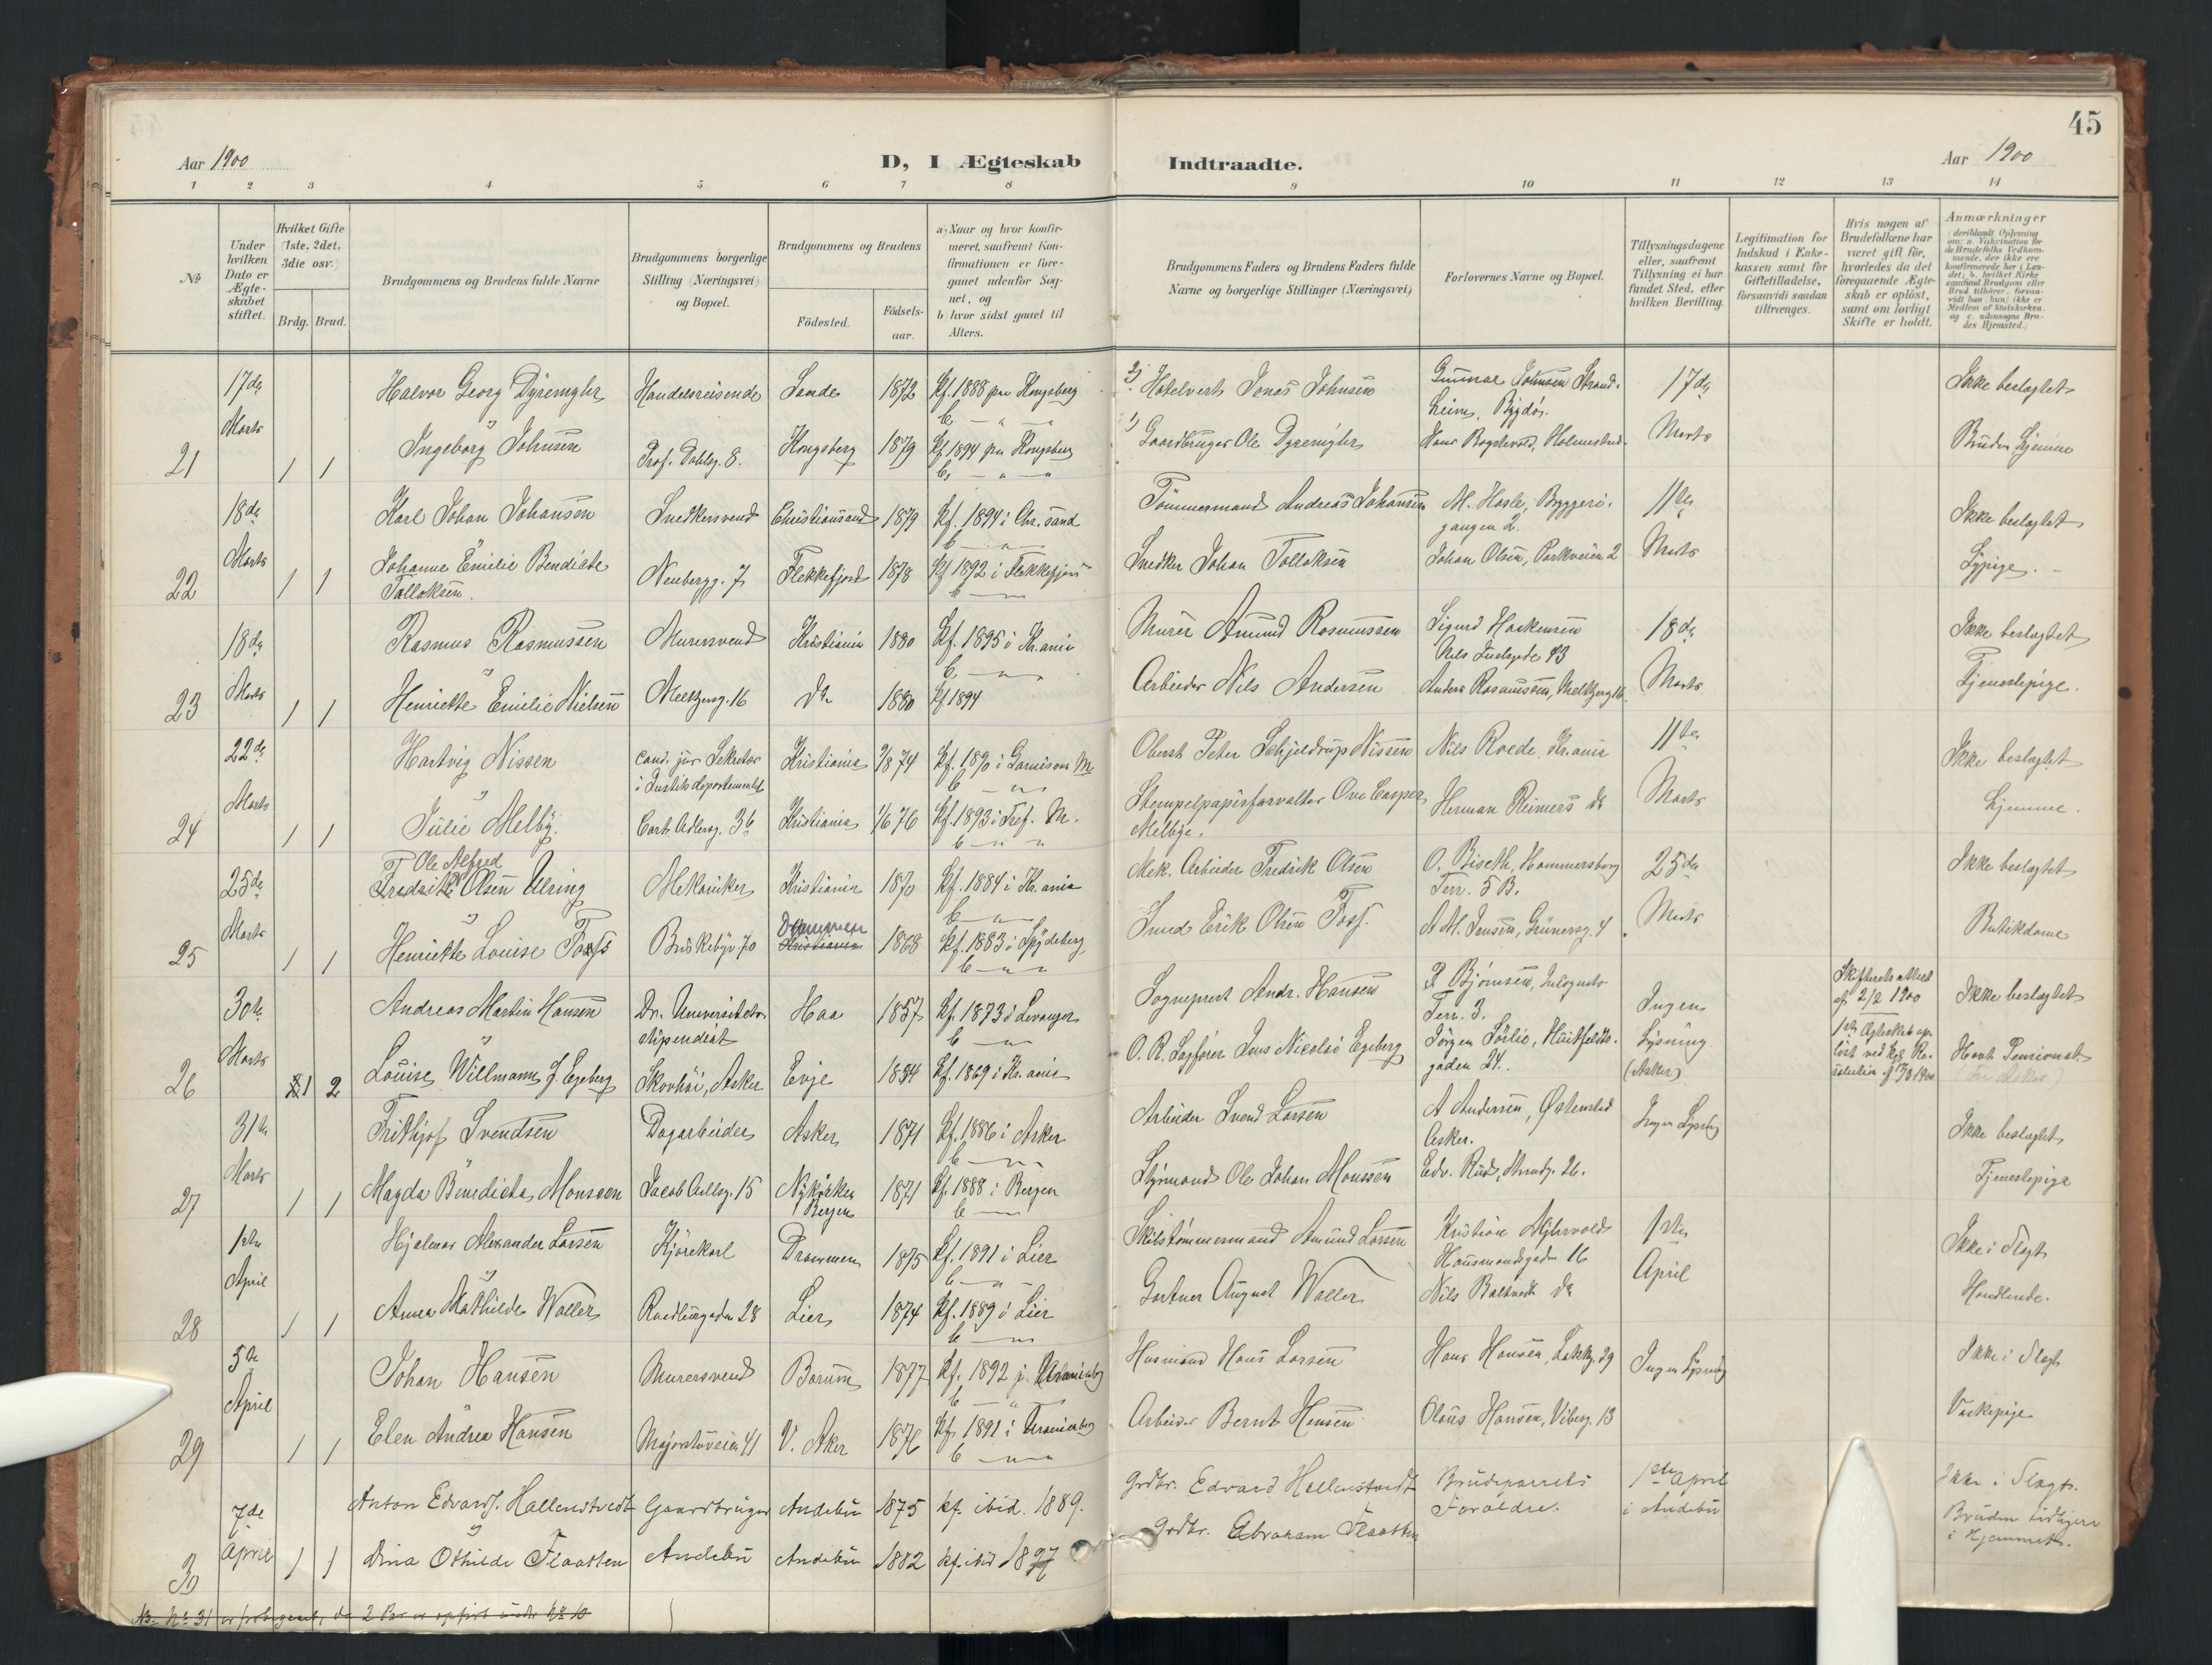 45
Aar 1900
D, I Ægteskab
Indtraadte.
Aar 1900
1 2 3 4 5 6 7 8 9 10 11 12 13 14
№
Under hvilken Dato er Ægteskabet stiftet.
Hvilket Gifte (1ste, 2det, 3die osv.)
Brdg. Brud.
Brudgommens og Brudens fulde Navne
Brudgommens borgerlige Stilling (Næringsvei) og Bopæl.
Brudgommens og Brudens
Fødested.
Fødselsaar.
a) Naar og hvor konfirmeret, saafremt Konfirmationen er foregaaet udenfor Sognet, og
b) hvor sidst gaaet til Alters.
Brudgommens Faders og Brudens Faders fulde Navne og borgerlige Stillinger (Næringsvei)
Forlovernes Navne og Bopæl.
Tillysningsdagene eller, saafremt Tillysning ei har fundet Sted, efter hvilken Bevilling.
Legitimation for Indskud i Enkekassen samt for Giftetilladelse, forsaavidt saadan tiltrænges.
Hvis nogen af Brudefolkene har været gift før, hvorledes da det foregaaende Ægteskab er opløst, samt om lovligt Skifte er holdt.
Anmærkninger (deriblandt Oplysning om: a. Vakcination for de Brudefolks Vedkommende, der ikke ere konfirmerede her i Landet; b. hvilket Kirkesamfund Brudgom eller Brud tilhører, forsaavidt han (hun) ikke er Medlem af Statskirken. og c. udensogns Brudes Hjemsted.)
17de Halvor Georg Dyremyhr Handelsreisende Sande 1872 Kf. 1888 paa Kongsberg 2) Hotelvert Jonas Johnsen Gunnar Johnsen Strandheim, Bygdø. 17de Ikke beslægtet
21 Marts 1 1 Ingeborg Johnsen Prof. Dahlsg. 8. Kongsberg 1879 Kf. 1894 paa Kongsberg 1) Gaardbruger Ole Dyremyhr Marts Bruden hjemme
18de Karl Johan Johansen Snedkersvend Christianssand 1879 Kf. 1894 i Chr.sand Tømmermand Andreas Johansen M. Hasle, Byggerigangen 2. 11te Ikke beslægtet
22 Marts 1 1 Johanne Emilie Bendicte Tolloksen. Neubergg. 7 Flekkefjord 1878 Kf 1892 i Flekkefjord Snedker Johan Tolloksen Johan Olsen, Parkveien 2 Marts Sypige.
18de Rasmus Rasmussen Murersvend Kristiania 1880 Kf. 1895 i Kr.ania Murer Amund Rasmussen Sigurd Haakensen 18de Ikke beslægtet
23 Marts 1 1 Henriette Emilie Nielsen Meltzersg. 16 do 1880 Kf 1894 Arbeider Nils Andersen Anders Rasmussen, Meltzersg 16. Marts Tjenestepige.
22de Hartvig Nissen cand. jur Sekretær i Justitsdepartementet Kristiania 74 Kf. 1890 i Garnisons M Oberst Peter Schjeldrup Nissen Nils Roede, Kr.ania 11te Ikke beslægtet
24 Marts 1 1 Julie Melby. Cort Adlersg. 36 Kristiania 76 Kf. 1893 i Tref. M. Stempelpapirforvalter Ove Casper Melbye. Herman Reimers do Marts hjemme.
25de Ole Alfred Fredriksen Olsen Ulring Mekaniker Kristiania 1870 Kf. 1884 i Kr.ania Mek. Arbeider Fredrik Olsen O. Biseth, Hammersborg Terr. 5 B. 25de Ikke beslægtet
25 Marts 1 1 Henriette Louise Foss Buskebyv. 70 Drammen Kristiania 1868 Kf. 1883 i Spydeberg Smed Erik Olsen Foss. A. M. Jensen, Grünersg. 4 Marts Butikdame
30te Andreas Martin Hansen Dr. Universitetsstipendiat Haa 1857 Kf. 1873 i Levanger Sogneprest Andr. Hansen P. Bjørnsen, Terr. 3. Ingen Skifteretsattest af 2/2 1900 Ikke beslægtet
26 Marts 1 2 Louise Willmann f. Egeberg Skovhøi, Asker Evje 1854 Kf. 1869 i Kr.ania O. R. Sagfører Jens Nicolai Egeberg Jørgen Sørlie, Huitfeldtsgaden 24. Lysning (Asker) 1ste Ægteskab opløst ved Kgl. Resolution 1900 Havt Pensionat
31te Frithjof Svendsen Dagarbeider Asker 1871 Kf. 1886 i Asker Arbeider Svend Larsen A Andersen, Østenstad Asker. Ingen Lysning Ikke beslægtet
27 Marts 1 1 Magda Benedicta Monssen Jacob Aallsg. 15 Nykirken Bergen 1871 Kf. 1888 i Bergen Styrmand Ole Johan Monssen Edv. Ruud, 26. Tjenestepige
1ste Hjalmar Alexander Larsen Kjørekarl Drammen 1875 Kf. 1891 i Lier Skibstømmermand Amund Larsen Kristian Hausmandsgaden 16 1ste Ikke i Slægt
28 April 1 1 Anna Mathilde Waller Lier 1874 Kf. 1889 i Lier Gartner August Waller Nils do April Handlende.
5te Johan Hansen Murersvend Bærum 1877 Kf. 1892 i Uranienborg Husmand Hans Larsen Hans Hansen, 29 Ingen Lysning Ikke i Slægt
29 April 1 1 Elen Andrea Hansen Majorstuveien 41 V. Aker 1876 Kf. 1891 i Uranienborg Arbeider Bernt Hansen Olaus Hansen, Vibesg. 13 Vaskepige
7de Anton Edvards. Hallenstvedt Gaardbruger Andebu 1875 kf. ibid. 1889. Grdbr. Edvard Hallenstvedt Brudeparrets Forældre. 1ste april i Andebu Ikke i Slægt.
30 April 1 1 Dina Othilde Flaatten Andebu Andebu 1882 kf. ibid 1897 Grdbr. Abraham Flaatten Bruden tidligere i Hjemmet.
NB. No 31 er forbigaaet, da 2 Par er opført under No 10